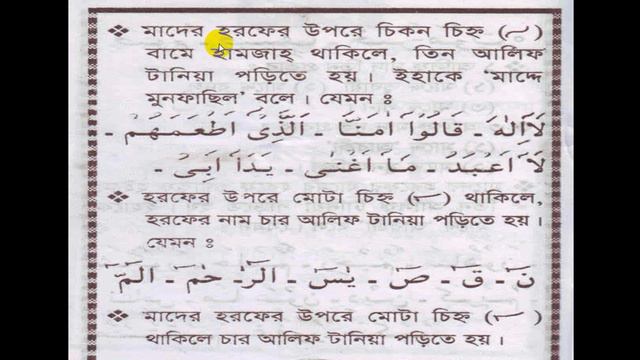 ❖ মাদের হরফের উপরে চিকন চিহ্ন (~)
বামে হামজাহ্ থাকিলে, তিন আলিফ
টানিয়া পড়িতে হয়। ইহাকে ‘মাদ্দে
মুনফাছিল’ বলে। যেমন ঃ
لَآ اِلٰهَ ـ قَالُوْآ اٰمَنَّا ـ الَّذِىْٓ اَطْعَمَهُمْ ـ
لَآ اَعْبُدُ ـ مَآ اَغْنٰى ـ يَدَآ اَبِىْ ـ
❖ হরফের উপরে মোটা চিহ্ন (~) থাকিলে,
হরফের নাম চার আলিফ টানিয়া পড়িতে হয়।
যেমন ঃ
نٓ ـ قٓ ـ صٓ ـ يٰسٓ ـ الٓرٰ ـ حٰمٓ ـ الٓمّٓ ـ
❖ মাদের হরফের উপরে মোটা চিহ্ন (~)
থাকিলে চার আলিফ টানিয়া পড়িতে হয়।